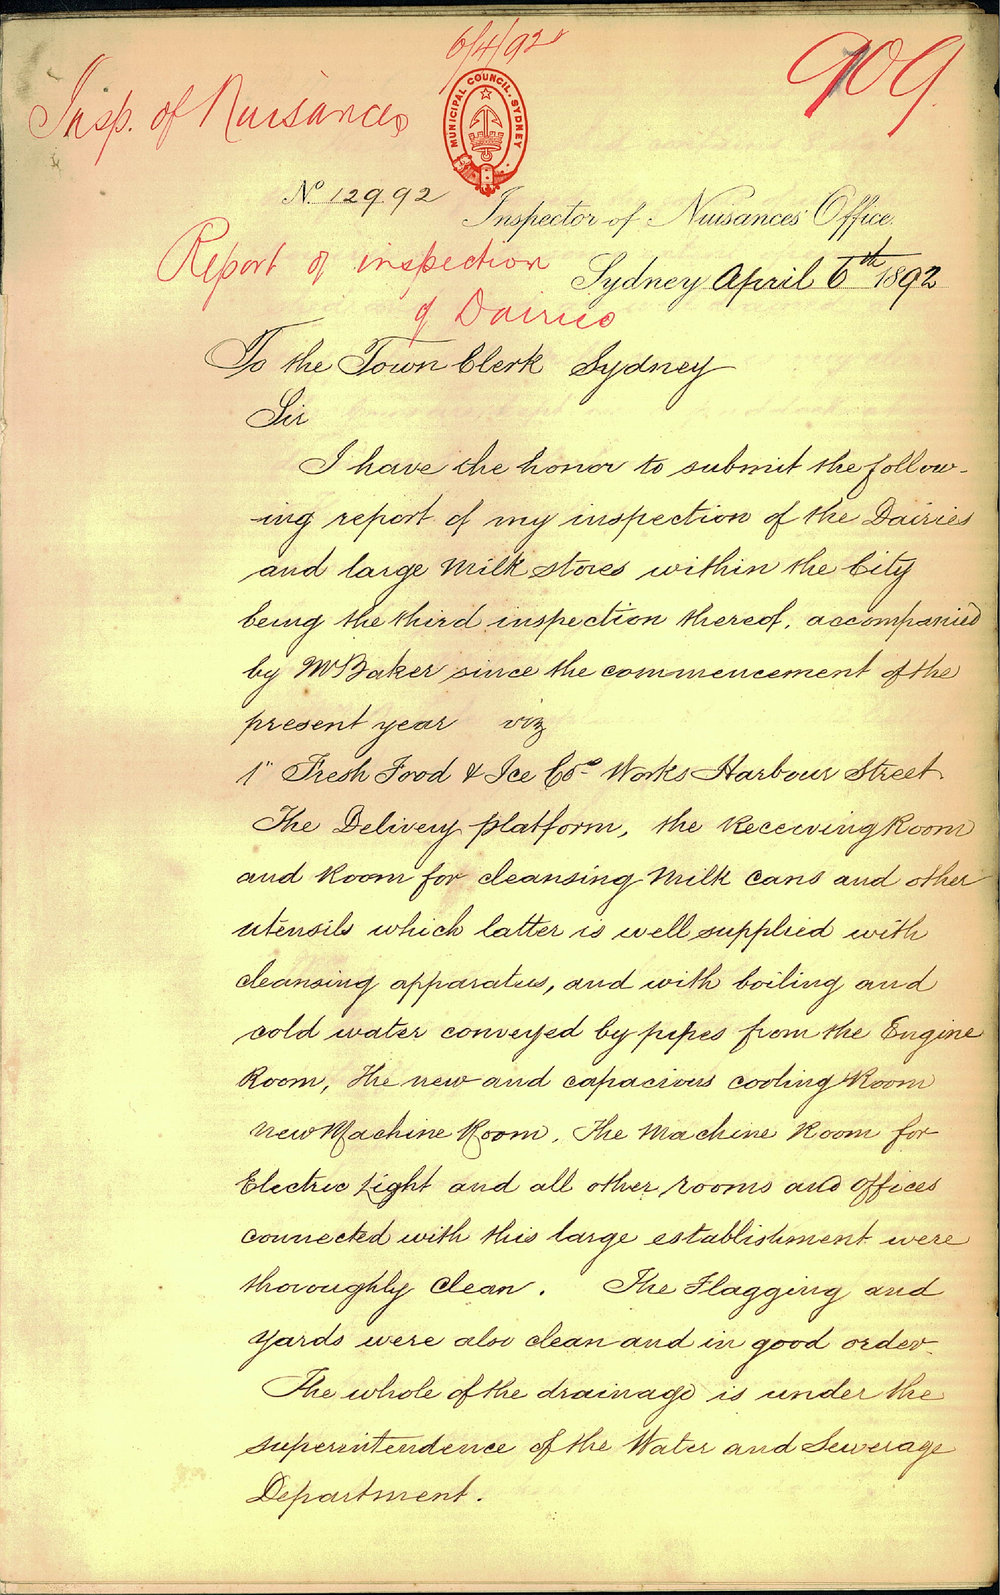 6/4/92
909.
Insp. of Nuisances
MUNICIPAL COUNCIL. SYDNEY
No. 129.92
Inspector of Nuisances' Office.
Report of inspection
of Dairies
Sydney April 6th 1892
To the Town Clerk Sydney
Sir
I have the honor to submit the follow-
ing report of my inspection of the Dairies
and large Milk stores within the City
being the third inspection thereof, accompanied
by Mr Baker since the commencement of the
present year viz
1" Fresh Food & Ice Co's Works Harbour Street
The Delivery platform, the Receiving Room
and Room for cleansing Milk Cans and other
utensils which latter is well supplied with
cleansing apparatus, and with boiling and
cold water conveyed by pipes from the Engine
Room, The new and capacious cooling Room
New Machine Room, The Machine Room for
Electric Light and all other rooms and offices
connected with this large establishment were
thoroughly Clean. The Flagging and
Yards were also clean and in good order.
The whole of the drainage is under the
superintendence of the Water and Sewerage
Department.